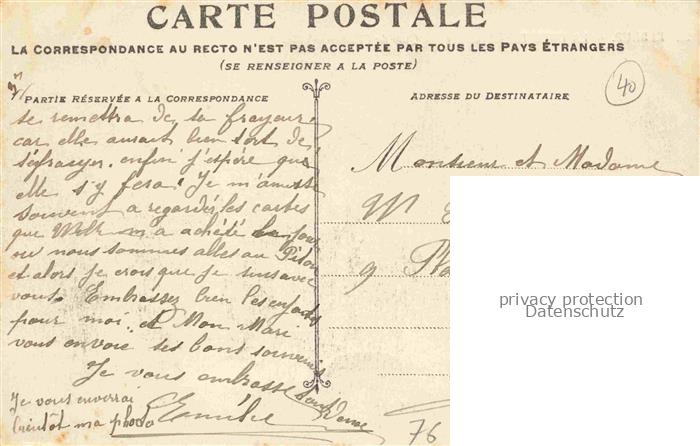 CARTE POSTALE
LA CORRESPONDANCE AU RECTO N'EST PAS ACCEPTÉE PAR TOUS LES PAYS ÉTRANGERS
(SE RENSEIGNER A LA POSTE)
40
PARTIE RÉSERVÉE A LA CORRESPONDANCE
ADRESSE DU DESTINATAIRE
se remettra de sa frayeur
car elle aurait bien tort de
s'éffrayer. enfin j'espère que
elle s'y fera. Je m'amuse
souvent a regarder les cartes
que m'a acheté le jour
ou nous sommes alles au
et alors je crois que je suis avec
vous. Embrassez bien les enfants
pour moi. et Mon Mari
vous envoie ses bons souvenirs
Je vous embrasse
Je vous enverrai
bientôt ma photo
Monsieur et Madame
M
9
76
privacy protection
Datenschutz